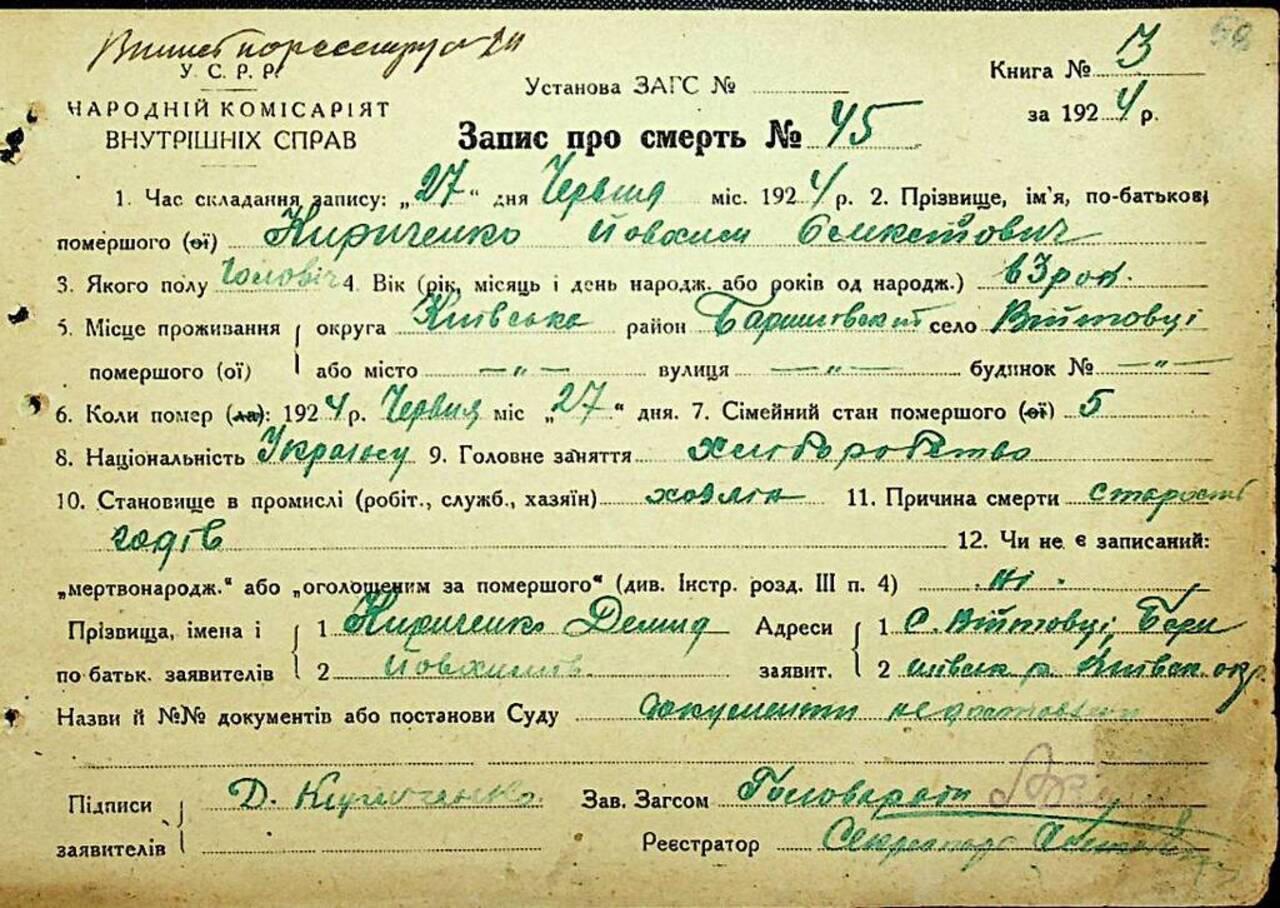 У. С. Р. Р.
НАРОДНІЙ КОМІСАРІЯТ
ВНУТРІШНІХ СПРАВ
Установа ЗАГС №
Книга № 3
за 1924 р.
Запис про смерть № 45
1. Час складання запису: „27“ дня Червня міс. 1924 р. 2. Прізвище, ім'я, по-батькові
помершого (ої) Кириченко Йовхим
3. Якого полу Чоловіч 4. Вік (рік, місяць і день народж. або років од народж.)
5. Місце проживання помершого (ої) округа Київська район село Війтовці
або місто — „ — вулиця — „ — будинок № — „ —
6. Коли помер (ла): 1924 р. Червня міс „27“ дня. 7. Сімейний стан помершого (ої) 5
8. Національність 9. Головне заняття
10. Становище в промислі (робіт., служб., хазяїн) 11. Причина смерти
годів 12. Чи не є записаний:
„мертвонародж.“ або „оголошеним за помершого“ (див. Інстр. розд. III п. 4) ні.
Прізвища, імена і по батьк. заявителів 1 Кириченко Демид Адреси заявит. 1 С. Війтовці,
2 2 Київск. окр.
Назви й №№ документів або постанови Суду документи
Підписи Д. Кириченко Зав. Загсом Голова ради
заявителів Реєстратор Секретарь